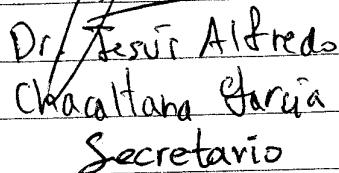 Dr. Jesús Alfredo
Chacaltana García
Secretario